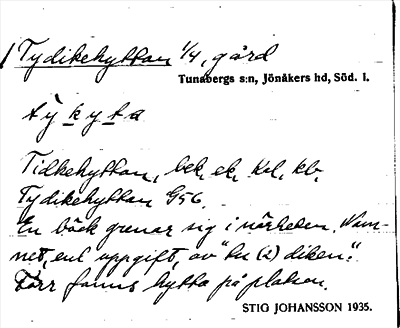 Tydikehyttan 1/4, gård
Tunabergs s:n, Jönåkers hd, Söd. l.
tỳkyta
Tidkehyttan, bek, ek, kol, kb.
Tydikehyttan G56.
En bäck grenar sig i närheden. Nam-
net, enl uppgift, av "tu (2) diken".
Förr fanns hytta på platsen.
STIG JOHANSSON 1935.